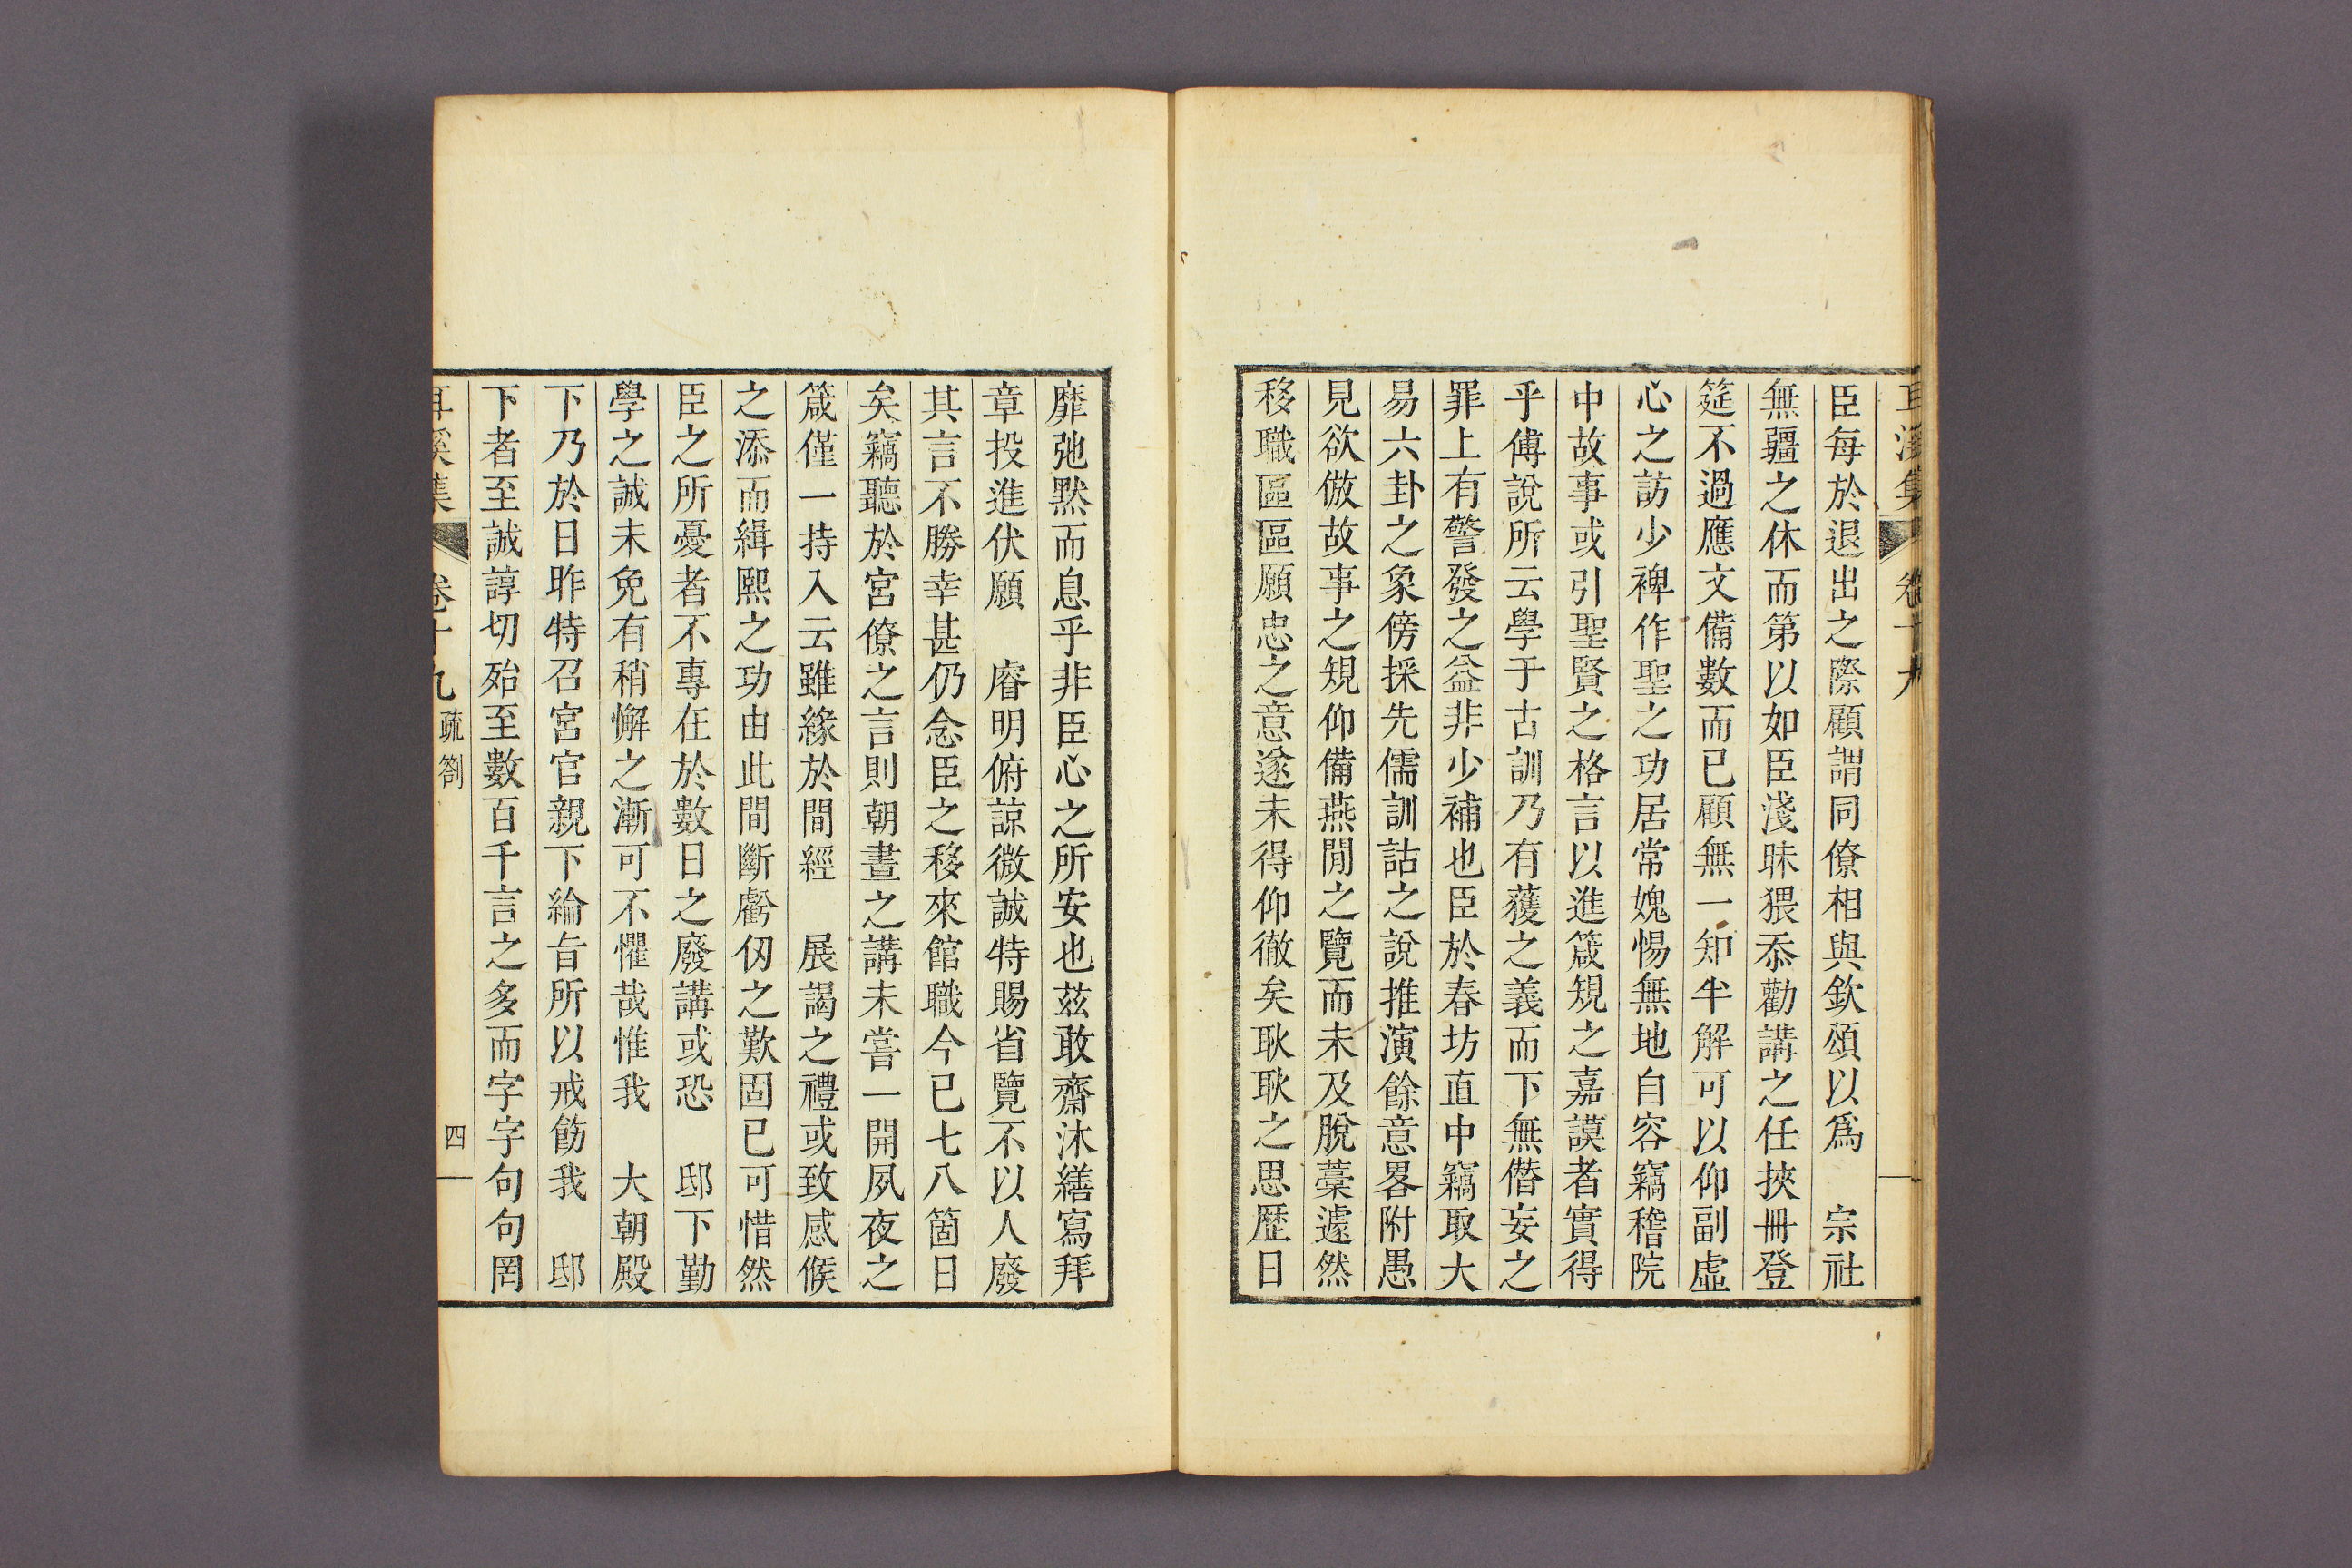 臣每於退出之際顧謂同僚相與欽頌以爲　宗社
無疆之休而第以如臣淺昧猥忝勸講之任挾冊登
筵不過應文備數而已顧無一知半解可以仰副虛
心之訪少裨作聖之功居常媿惕無地自容竊稽院
中故事或引聖賢之格言以進箴規之嘉謨者實得
乎傅說所云學于古訓乃有蒦之義而下無僭妄之
罪上有警發之益非少補也臣於春坊直中竊取大
易六卦之象傍採先儒訓詁之說推演餘意畧附愚
見欲倣故事之規仰備燕閒之覽而未及脫藁遽然
移職區區願忠之意遂未得仰徹矣耿耿之思歷日
靡弛默而息乎非臣心之所安也茲敢齋沐繕寫拜
章投進伏願　睿明俯諒微誠特賜省覽不以人廢
其言不勝幸甚仍念臣之移來館職今已七八箇日
矣竊聽於宮僚之言則朝晝之講未嘗一開夙夜之
箴僅一持入云雖緣於間經　展謁之禮或致感候
之添而緝熙之功由此間斷虧仞之歎固已可惜然
臣之所憂者不專在於數日之廢講或恐　邸下勤
學之誠未免有稍懈之漸可不懼哉惟我　大朝殿
下乃於日昨特召宮官親下綸旨所以戒飭我　邸
下者至誠諄切殆至數百千言之多而字字句句罔
耳溪集　卷十九　疏劄　四